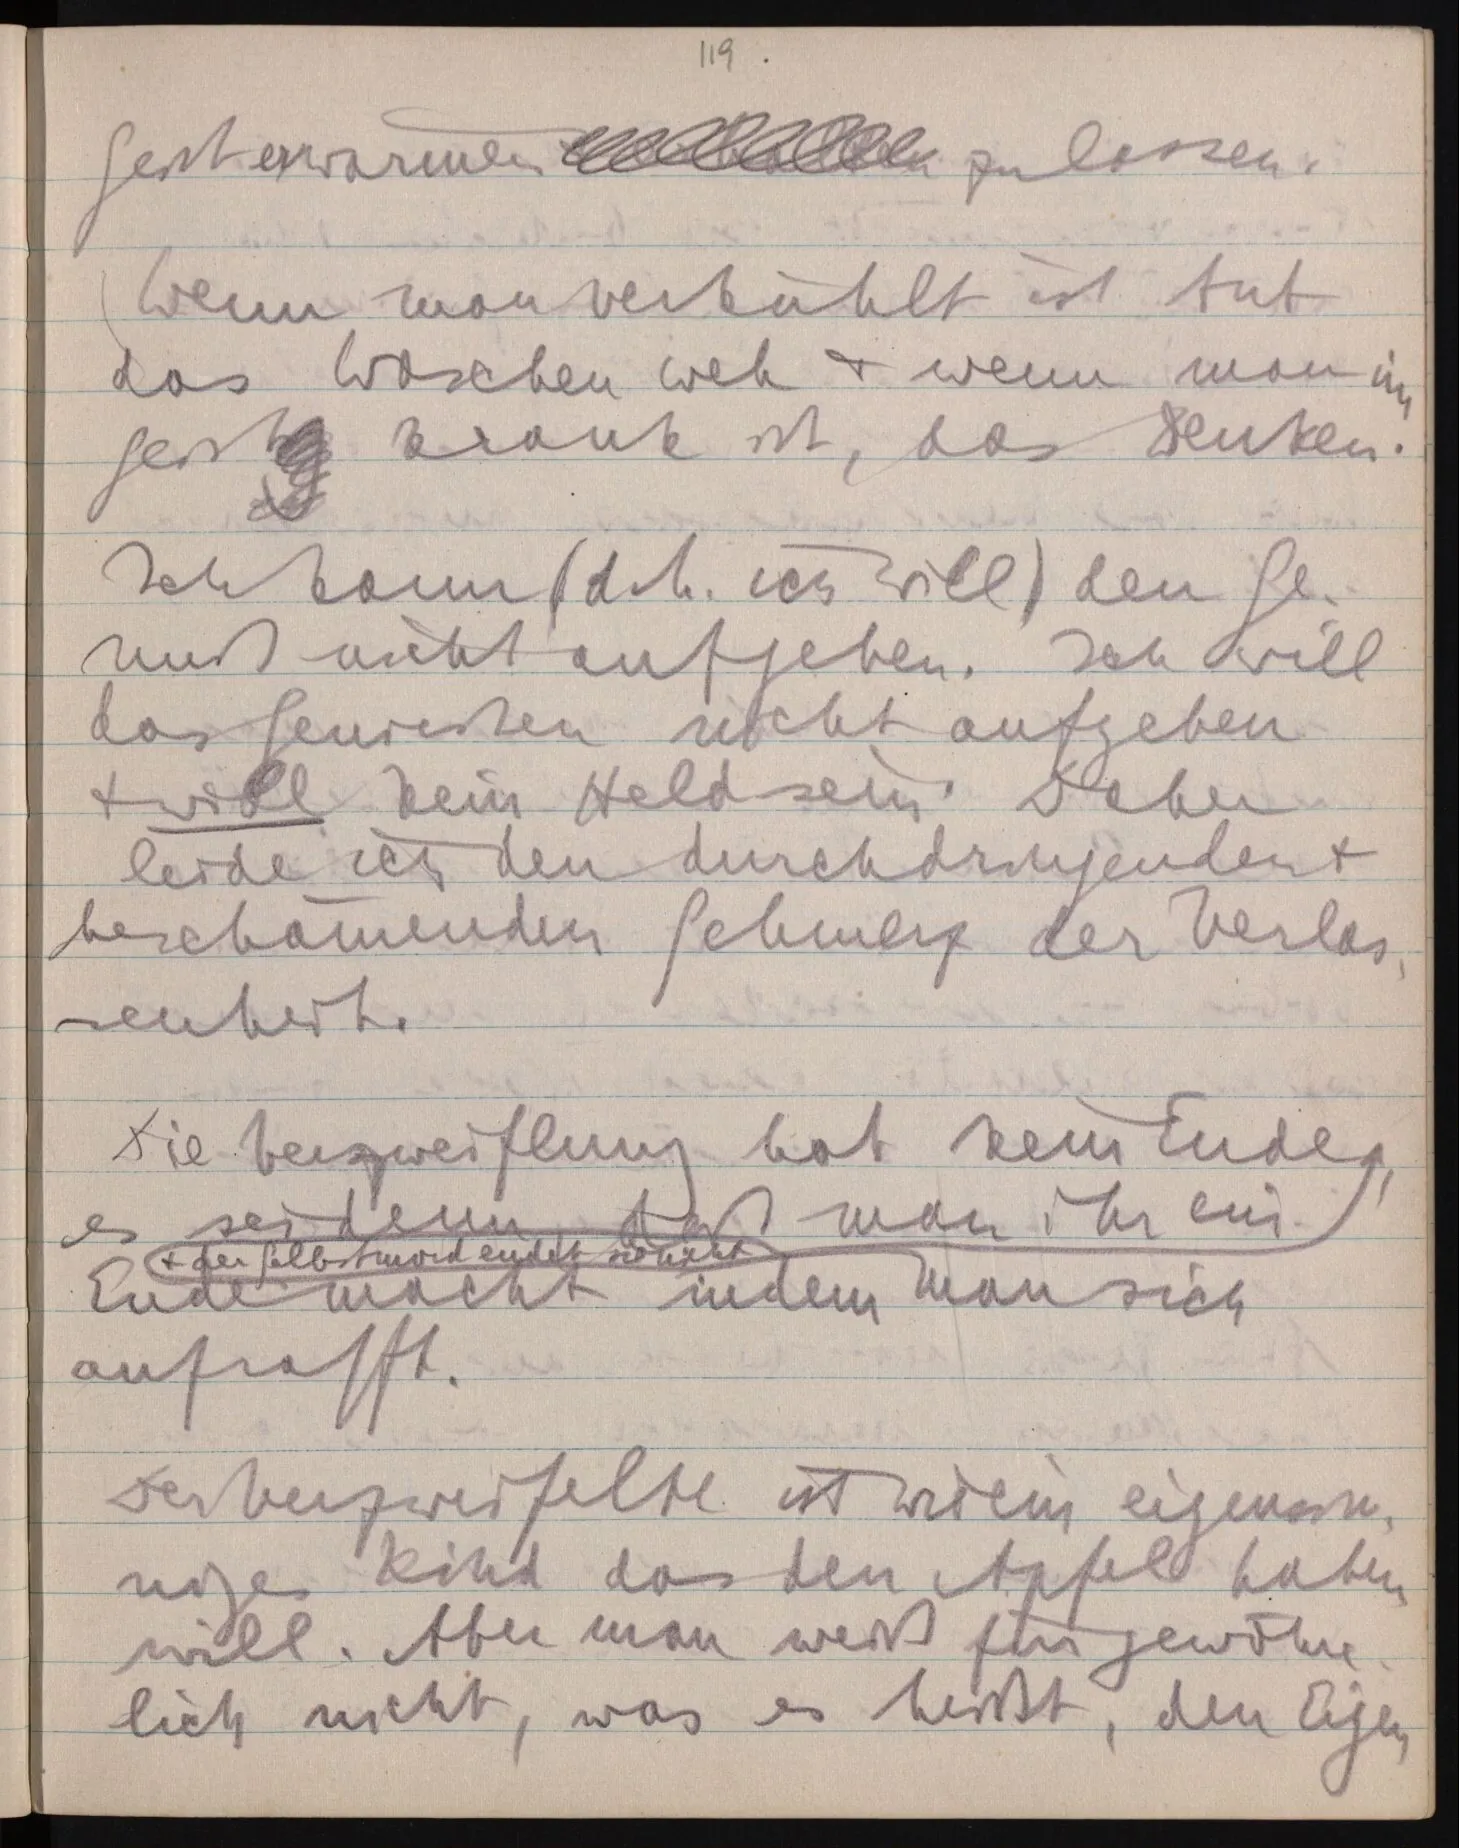 119.
Geist erwärmen zu lassen.
Wenn man verkühlt ist tut
das Waschen weh + wenn man im
Geist krank ist, das Denken.
Ich kann (d.h. ich will) den Ge-
nuß nicht aufgeben. Ich will
das Genießen nicht aufgeben
+ will kein Held sein. Daher
leide ich den durchdringenden +
beschämenden Schmerz der Verlas-
senheit.
Die Verzweiflung hat kein Ende,
es sei denn daß man ihr ein
+ der Selbstmord endet sie nicht
Ende macht indem man sich
aufrafft.
Der Verzweifelte ist wie ein eigensin-
niges Kind das den Apfel haben
will. Aber man weiß für gewöhn-
lich nicht, was es heißt, den Eigen-